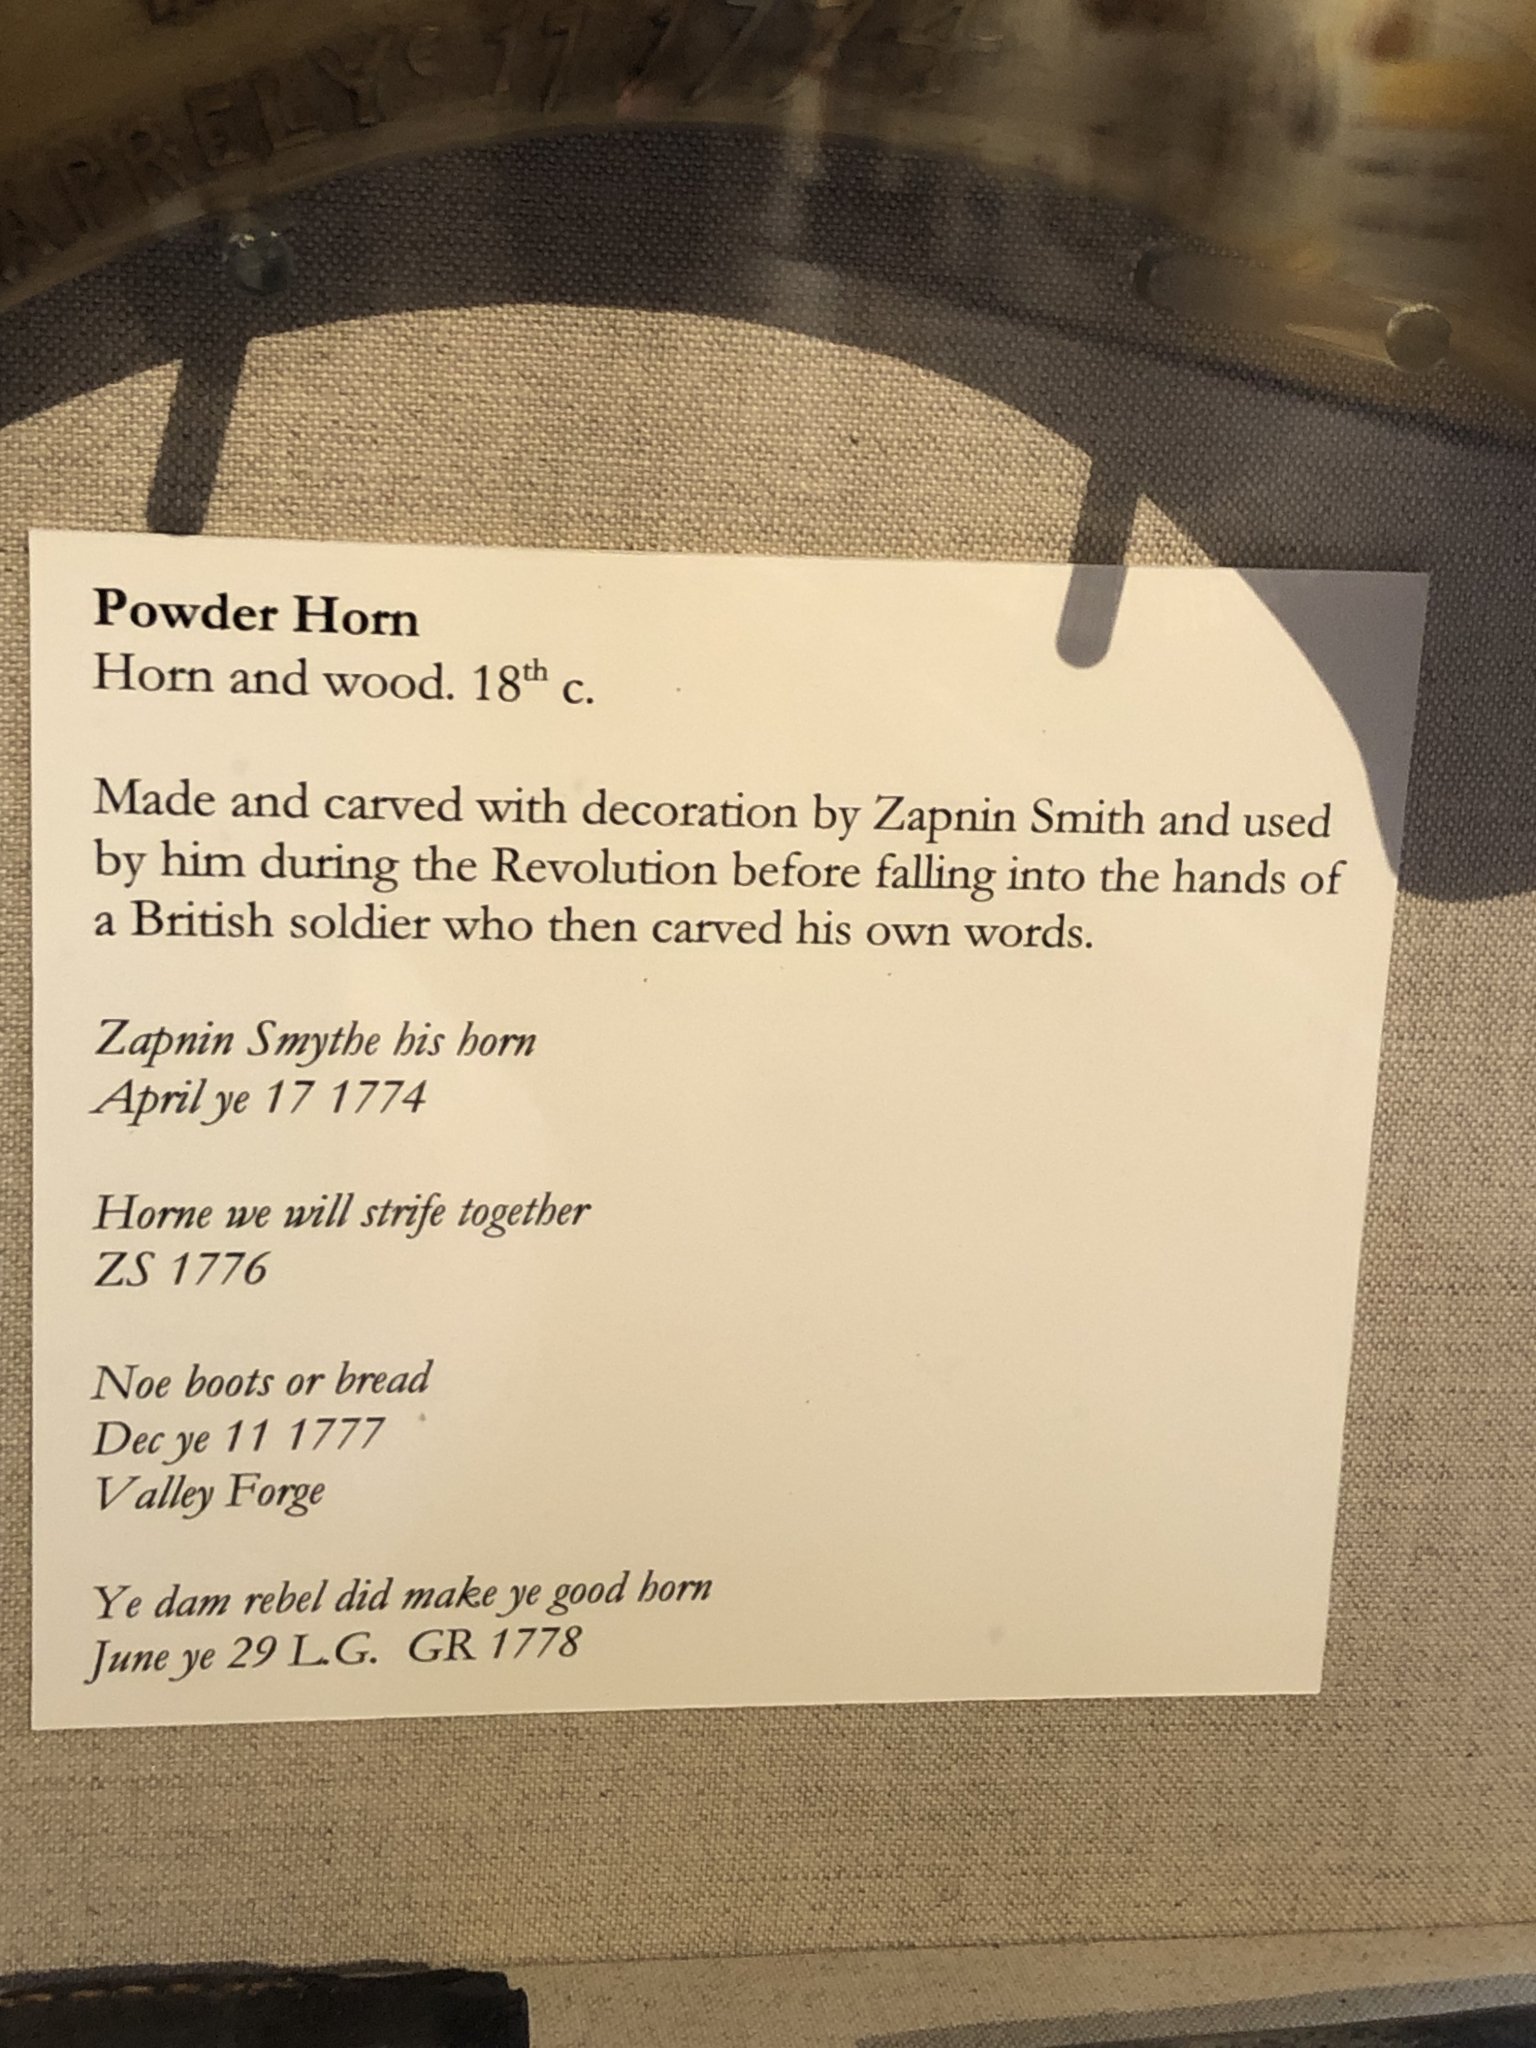 APRELYE 17 1774
Powder Horn
Horn and wood. 18th c.
Made and carved with decoration by Zapnin Smith and used
by him during the Revolution before falling into the hands of
a British soldier who then carved his own words.
Zapnin Smythe his horn
April ye 17 1774
Horne we will strife together
ZS 1776
Noe boots or bread
Dec ye 11 1777
Valley Forge
Ye dam rebel did make ye good horn
June ye 29 L.G. GR 1778